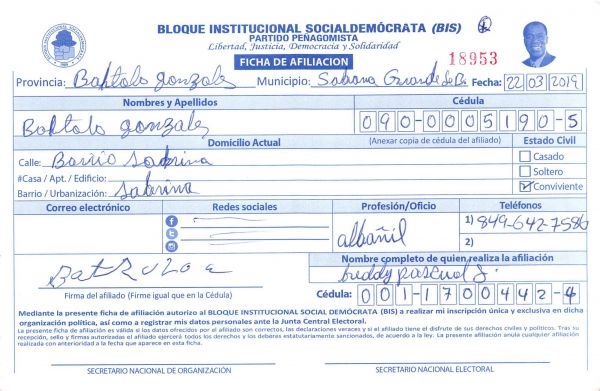 BLOQUE INSTITUCIONAL SOCIALDEMÓCRATA (BIS)
PARTIDO PEÑAGOMISTA
Libertad, Justicia, Democracia y Solidaridad
FICHA DE AFILIACION
18953
Provincia: Baltolo gonzales Municipio: Sabana Grande de Bo Fecha: 22 03 2019
Nombres y Apellidos
Cédula
Baltolo gonzales
090-0005190-5
Domicilio Actual
(Anexar copia de cédula del afiliado)
Estado Civil
Calle: Barrio Sabrina
Casado
#Casa / Apt. / Edificio:
Soltero
Barrio / Urbanización: Sabrina
Conviviente
Correo electrónico
Redes sociales
Profesión/Oficio
Teléfonos
albañil
1) 849-642-7586
2)
Nombre completo de quien realiza la afiliación
freddy pascual J.
Firma del afiliado (Firme igual que en la Cédula)
Cédula: 001-1700442-4
Mediante la presente ficha de afiliación autorizo al BLOQUE INSTITUCIONAL SOCIAL DEMÓCRATA (BIS) a realizar mi inscripción única y exclusiva en dicha
organización política, así como a registrar mis datos personales ante la Junta Central Electoral.
La presente ficha de afiliación es válida si los datos ofrecidos por el afiliado son correctos, las declaraciones veraces y si el afiliado tiene el disfrute de sus derechos civiles y políticos. Tras su
recepción, sello y firmas autorizadas el afiliado ejercerá todos los derechos y los deberes estatutariamente sancionados, de acuerdo a la ley. La presente afiliación anula cualquier afiliación
realizada con anterioridad a la fecha que aparece en esta ficha.
SECRETARIO NACIONAL DE ORGANIZACIÓN
SECRETARIO NACIONAL ELECTORAL